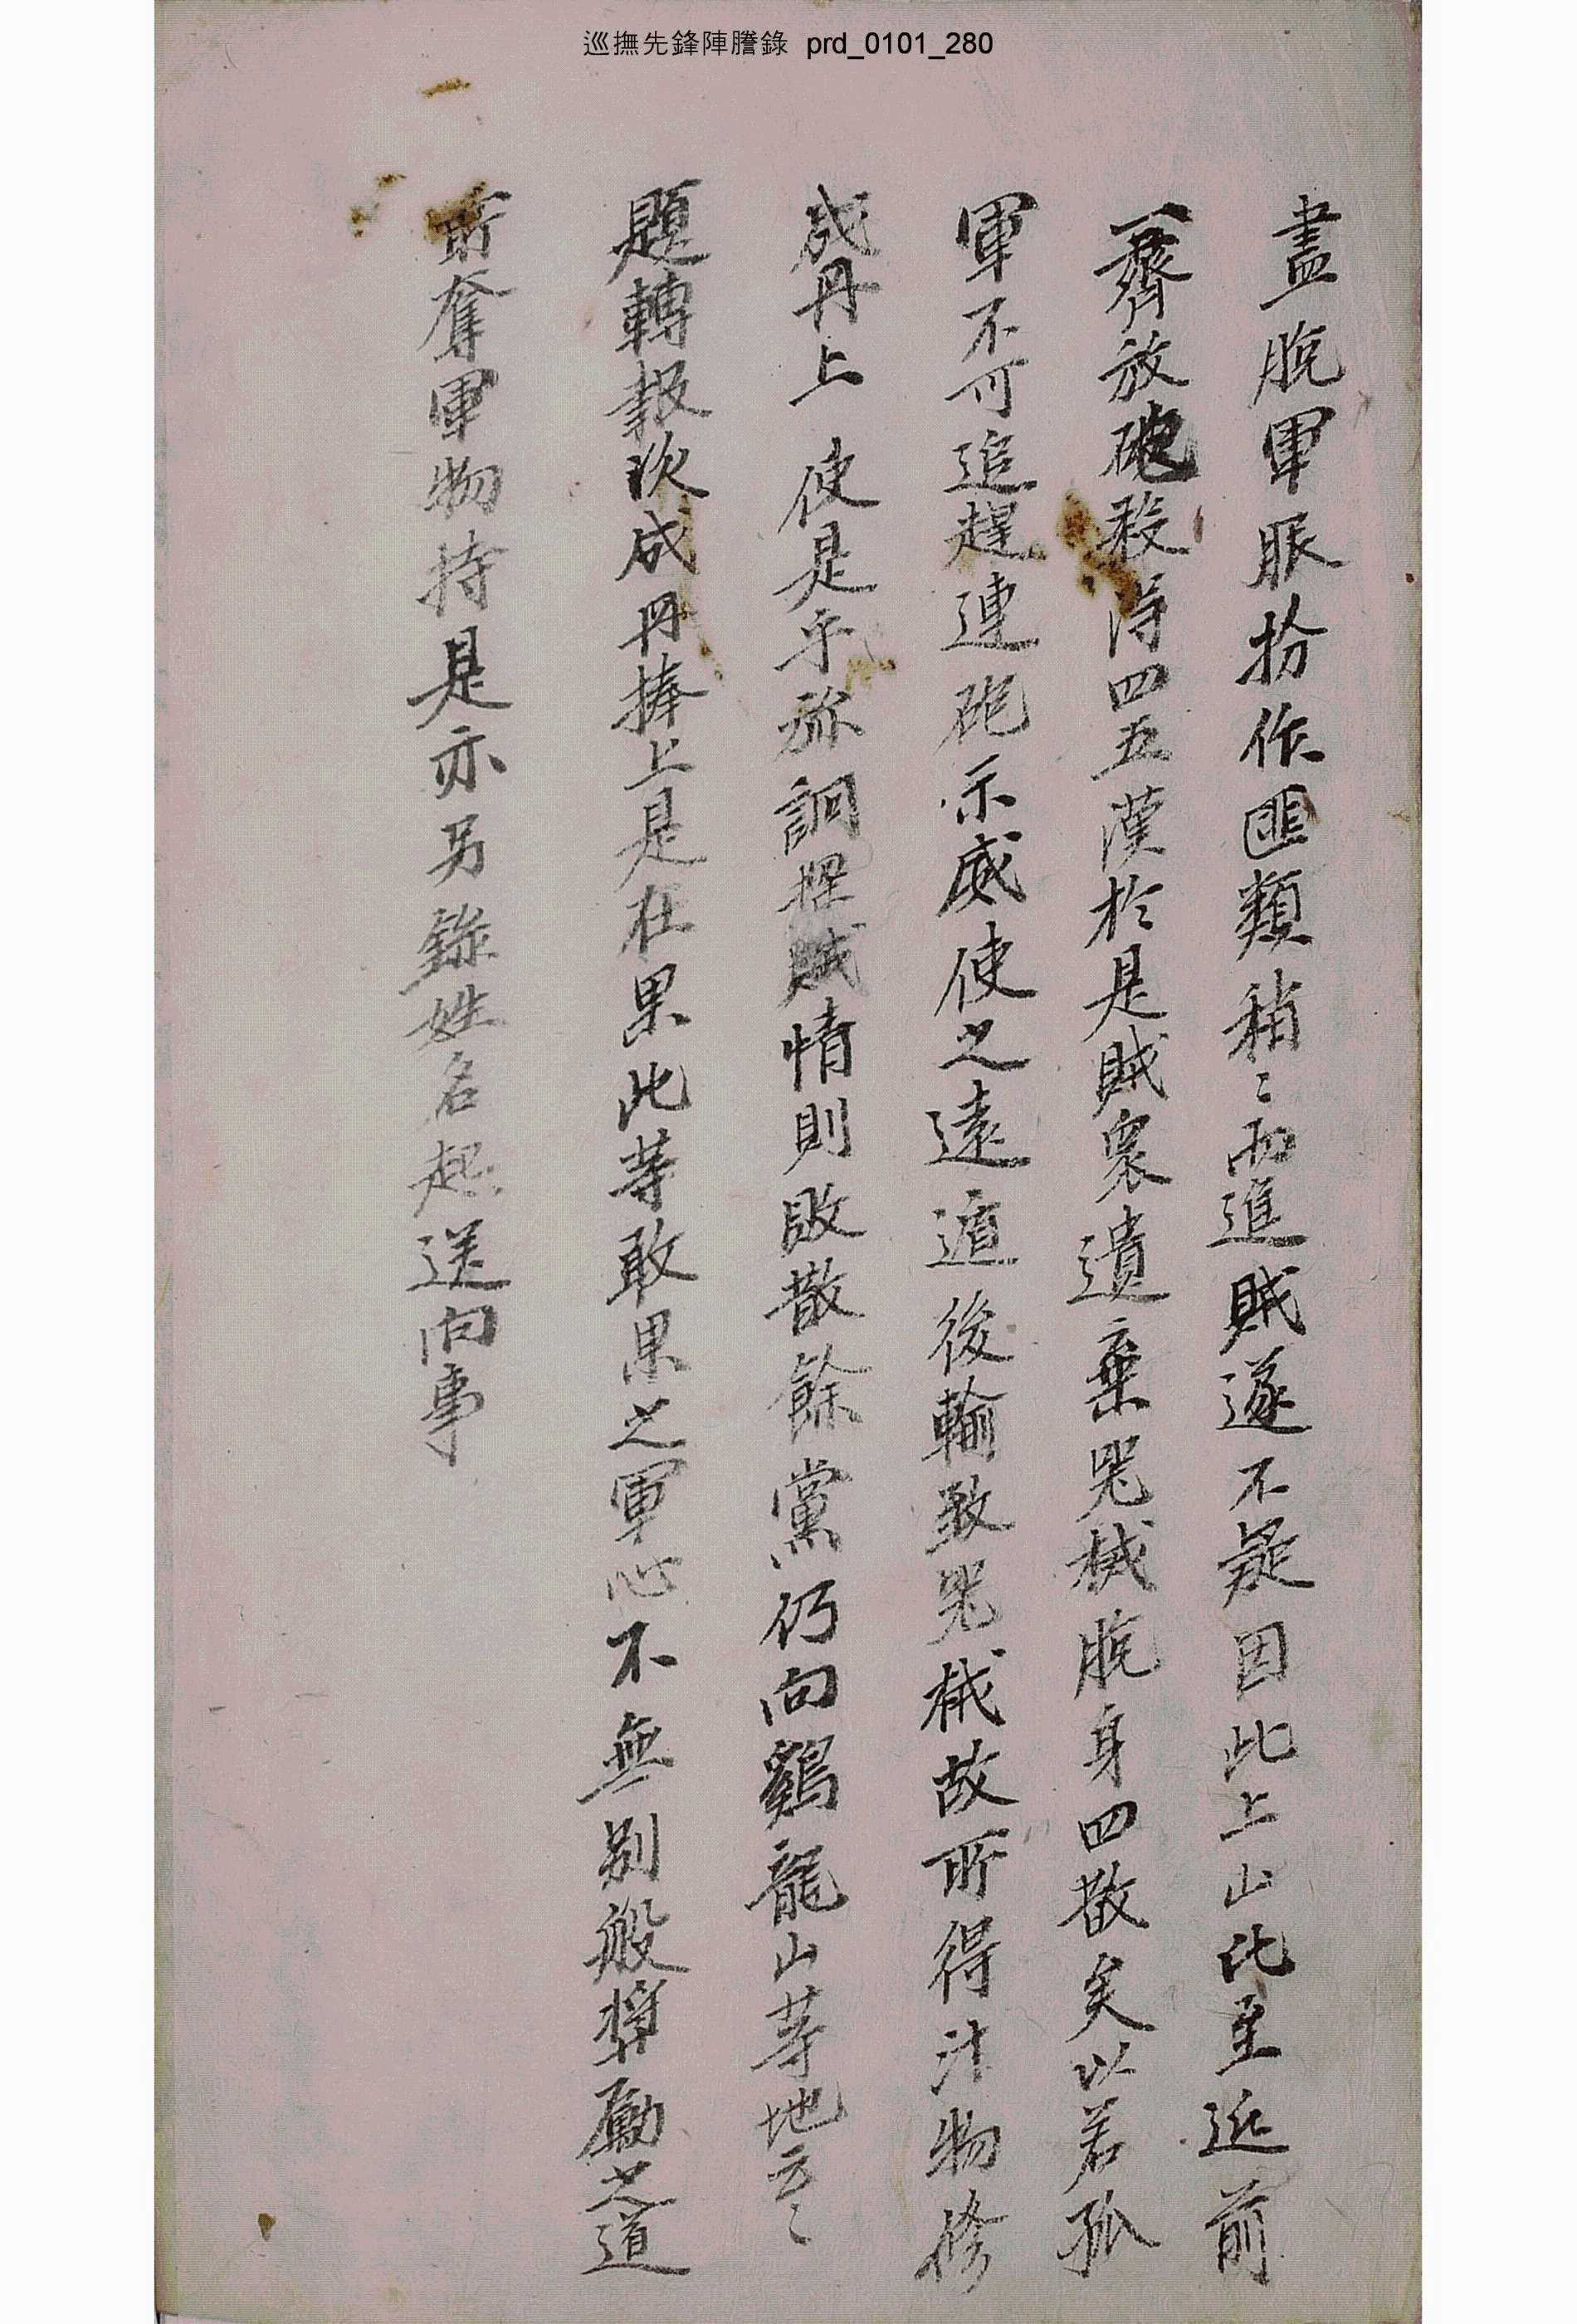 巡撫先鋒陣謄錄 prd_0101_280
盡脫軍服扮作匪類稍〻而進賊遂不疑因此上山比至近前
一齊放砲殺得四五漢於是賊衆遺棄器械脫身四散矣以若孤
軍不可追趕連砲示威使之遠遁後輸致器械故所得汁物修
成冊上使是乎旀詗探賊情則敗散餘黨仍向鷄龍山等地云〻
題轉報次成冊捧上是在果此等敢果之軍心不無別般奬勵之道
所奪軍物持是亦另錄姓名起送向事